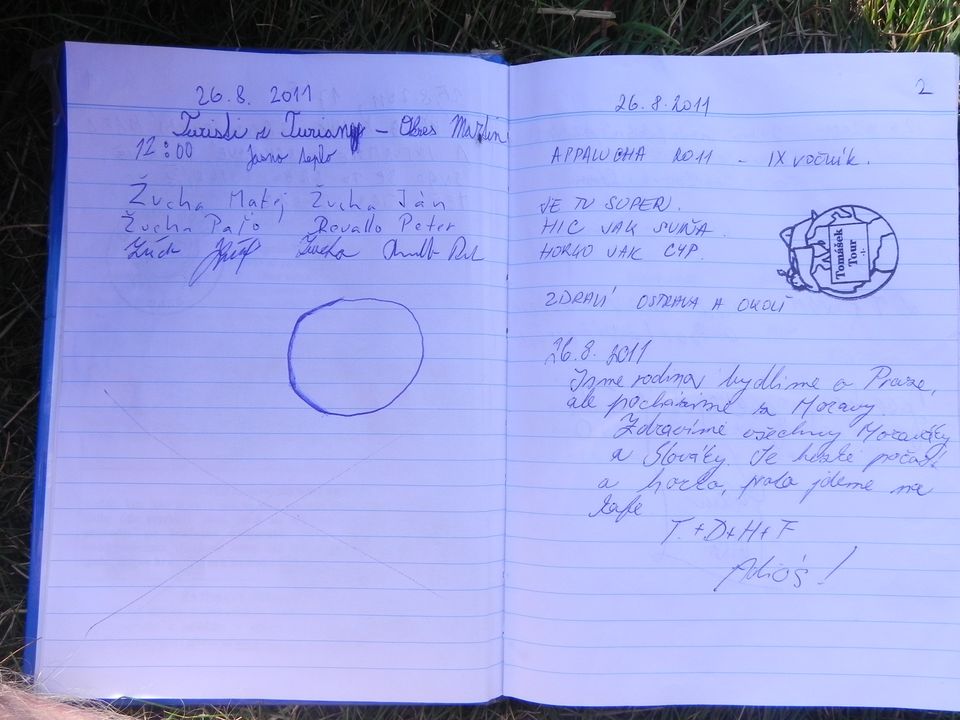 26.8. 2011
Turisti z Turian – Okres Martin
12:00 Jasno teplo
Žucha Matej Žucha Ján
Žucha Paľo Revallo Peter
Žucha
2
26.8.2011
APPALUCHA 2011 – IX ROČNÍK.
JE TU SUPER.
HIC JAK SVIŇA.
HORKO JAK CYP.
Tomášek
Tour
ZDRAVÍ OSTRAVA A OKOLÍ
26.8. 2011
Jsme rodina, bydlíme v Praze,
ale pocházíme z Moravy.
Zdravíme všechny Moraváky
a Slováky. Je hezké počasí
a horko, proto jdeme na
kafe
T.+D+H+F
Adiós!